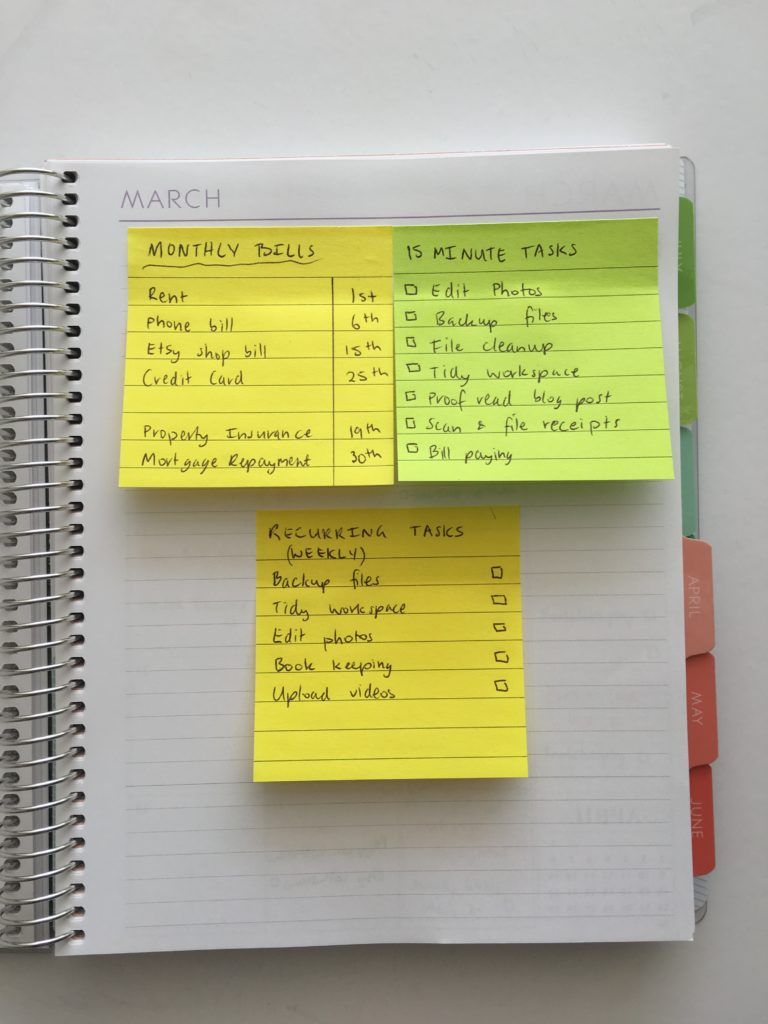 MARCH
MONTHLY BILLS
Rent 1st
Phone bill 6th
Etsy shop bill 15th
Credit Card 25th
Property Insurance 19th
Mortgage Repayment 30th
15 MINUTE TASKS
Edit Photos
Backup files
File cleanup
Tidy workspace
Proof read blog post
Scan & file receipts
Bill paying
RECURRING TASKS
(WEEKLY)
Backup files
Tidy workspace
Edit photos
Book keeping
Upload videos
JULY
APRIL
MAY
JUNE